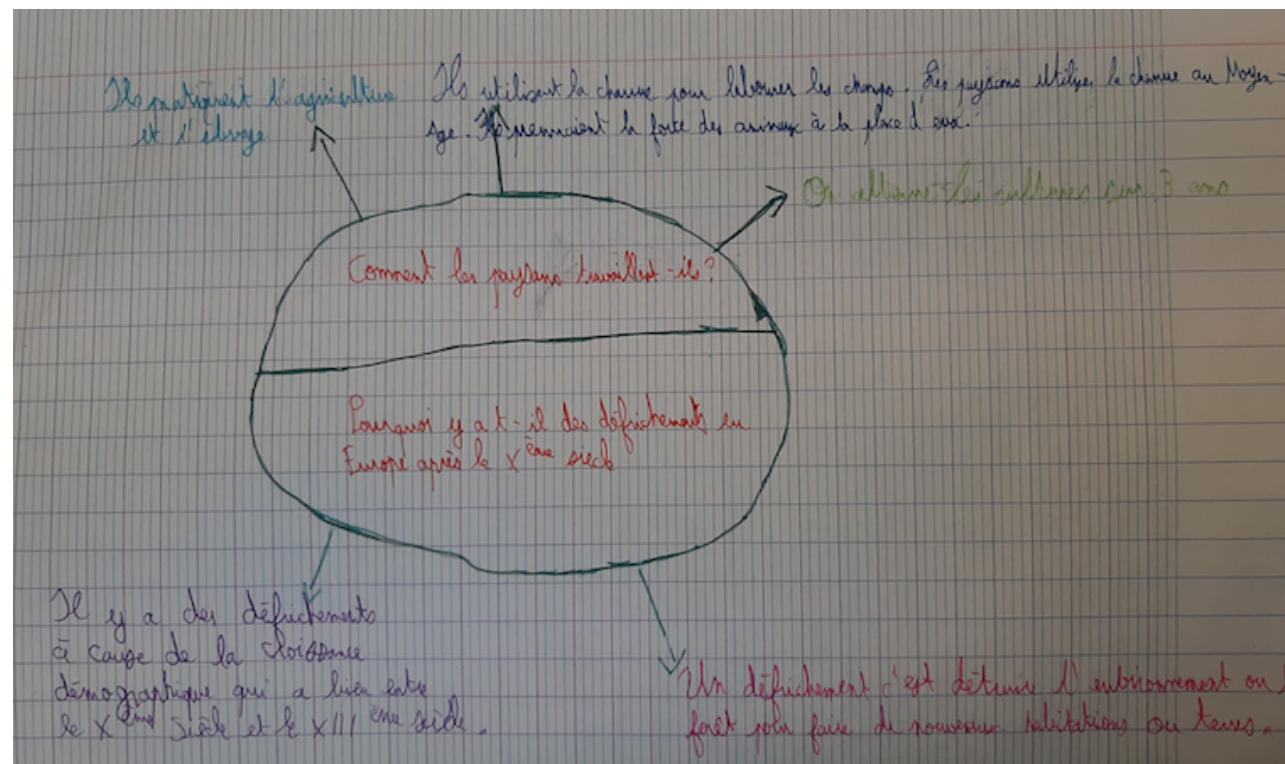 Ils pratiquent l'agriculture
et l'élvage
Ils utilisent la charrue pour labourer les champs. Les paysans utilise la charrue au Moyen-
Age. Ils prennaient la force des animaux à la place d'eux.
On alterne les cultures sur 3 ans
Comment les paysans travaillent-ils?
Pourquoi y a t-il des défrichements en
Europe après le Xème siècle
Il y a des défrichements
à cause de la croissance
démographique qui a lieu entre
le Xème siècle et le XIIIème siècle.
Un défrichement c'est détruire l'environnement ou
forêt pour faire de nouveaux habitations ou terres.